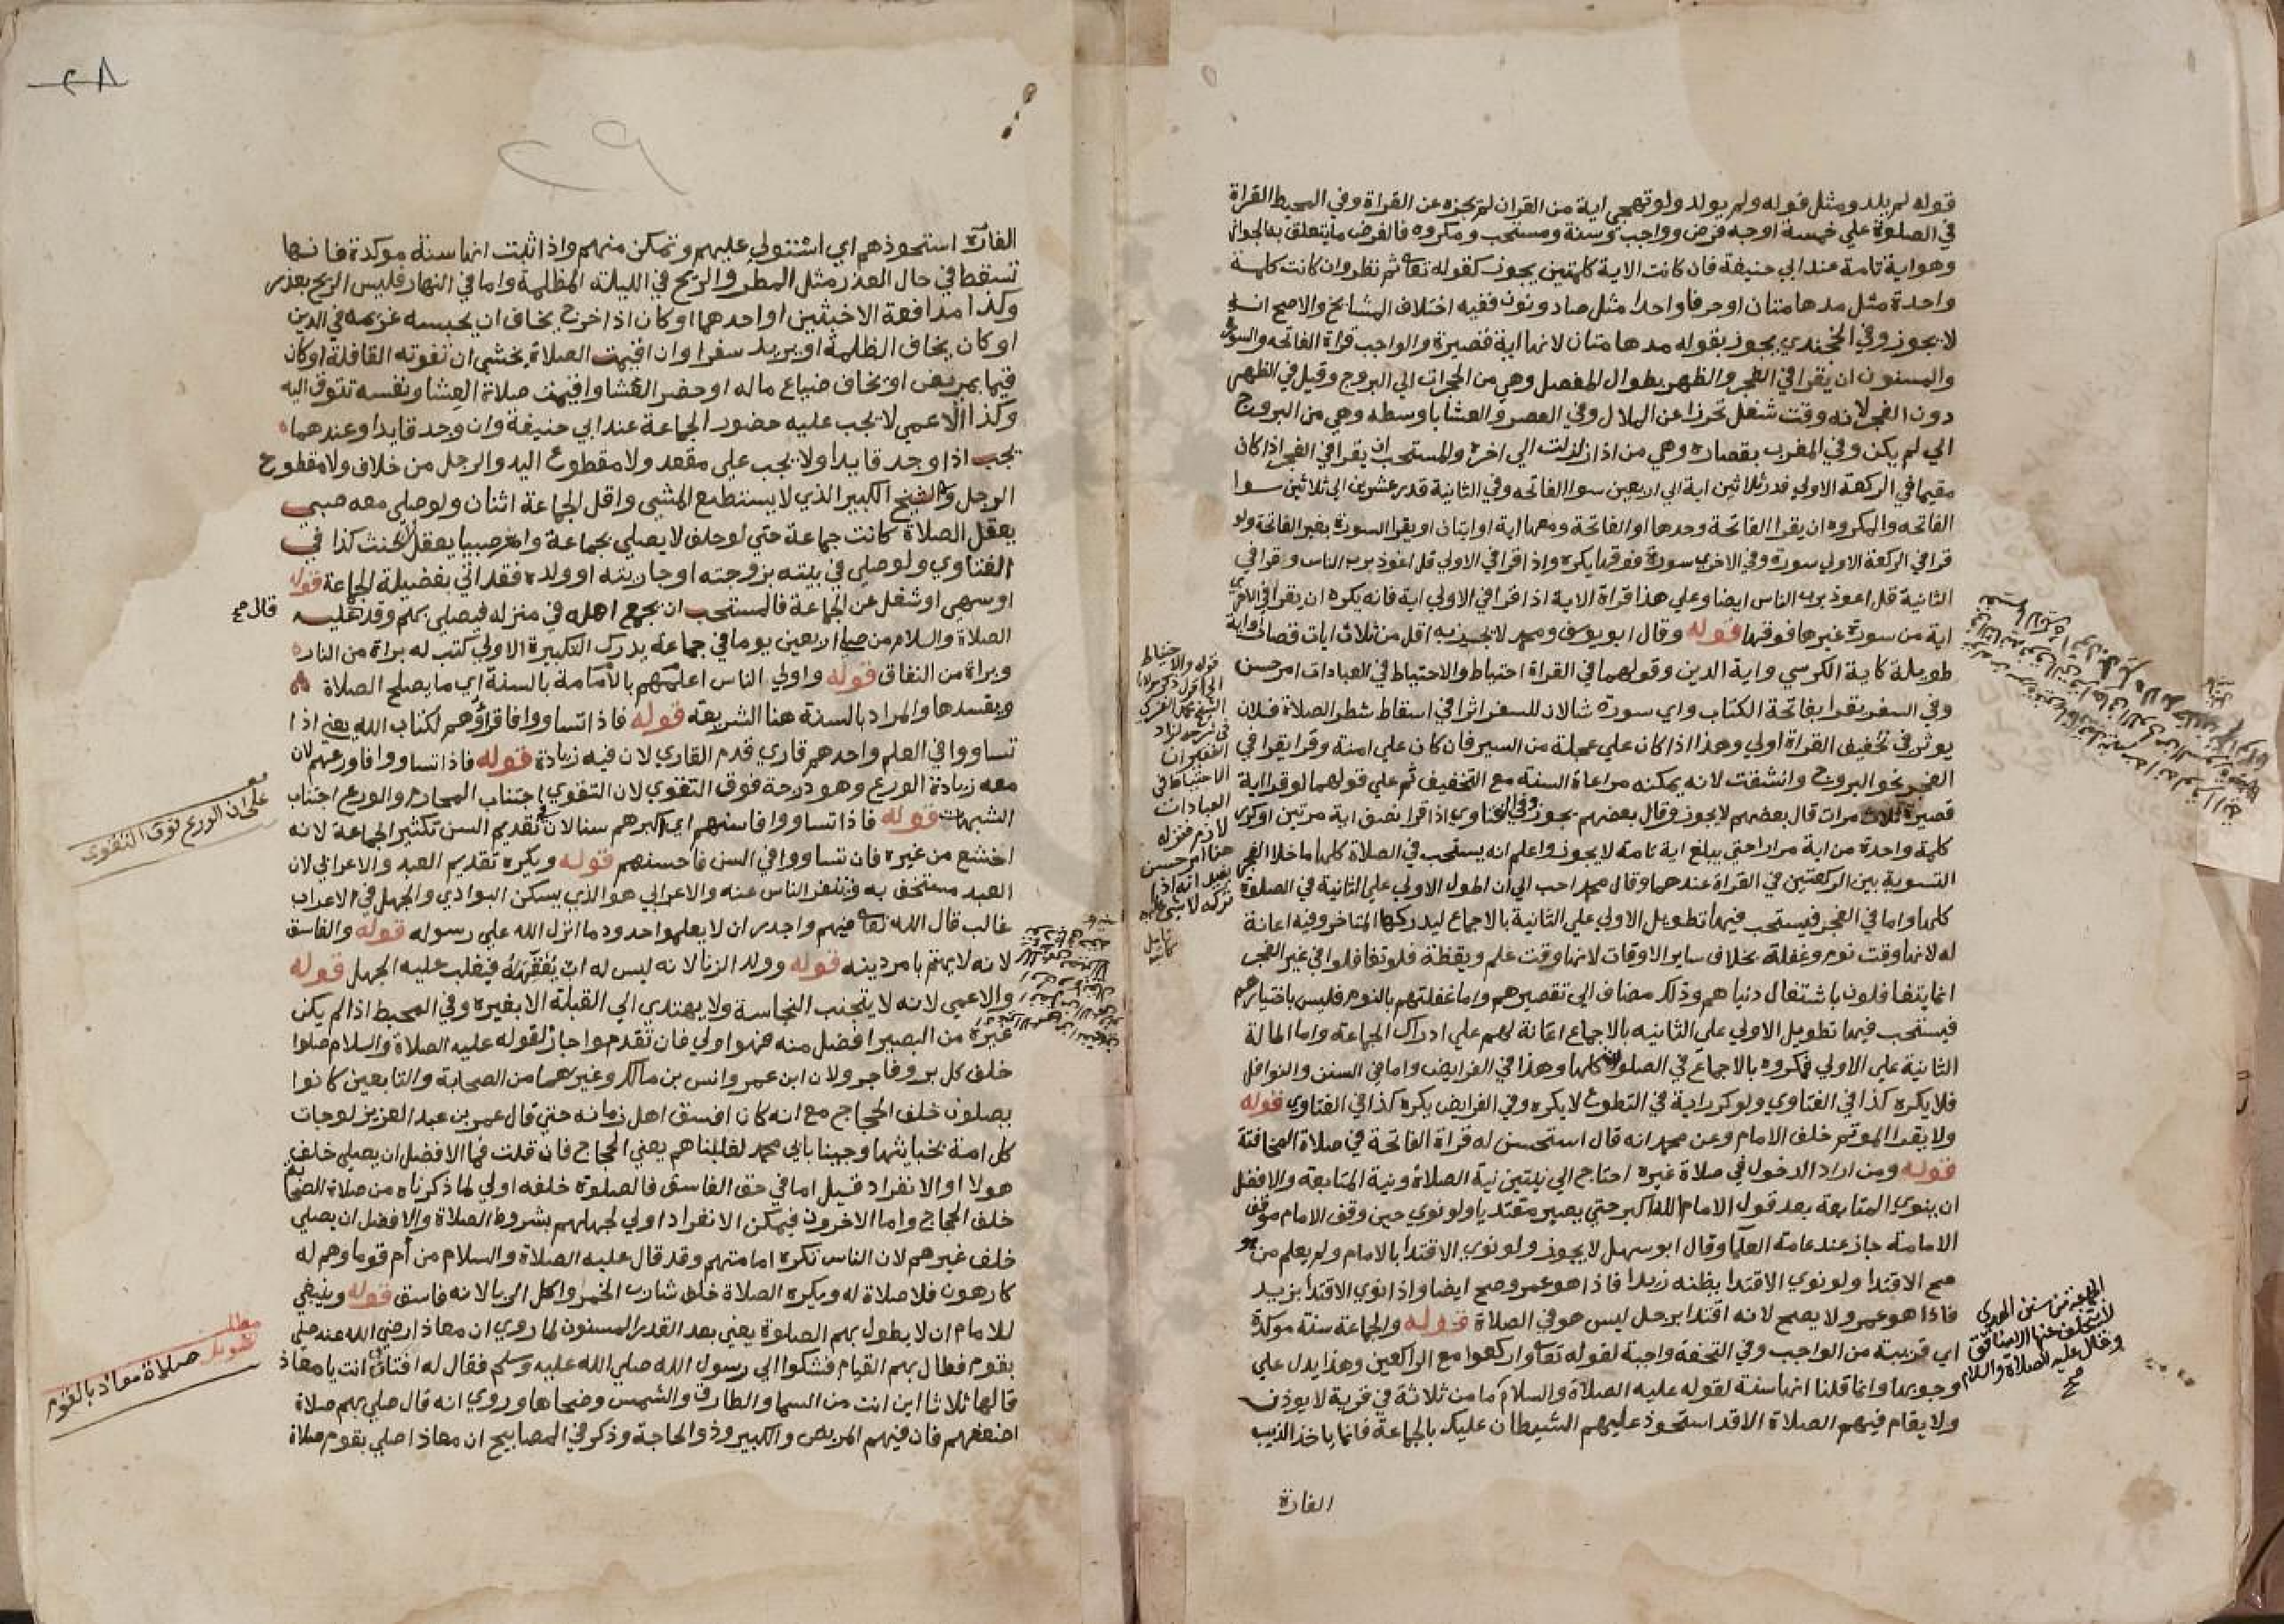 قوله لم يلد ومثل قوله ولم يولد ولو تهجي اية من القران لم يجزه عن القراة وفي المحيط القراة
في الصلوة علي خمسة اوجه فرض وواجب وسنة ومستحب ومكروه فالفرض ما يتعلق به الجواز
وهو اية تامة عند ابي حنيفة فان كانت الاية كلمتين يجوز كقوله تعا ثم نظر وان كانت كلمة
واحدة مثل مدهامتان او حرفا واحدا مثل صاد ونون ففيه اختلاف المشايخ والاصح انه
لا يجوز وفي الخجندي يجوز بقوله مدهامتان لانها اية قصيرة والواجب قراة الفاتحه والسورة
والمسنون ان يقرا في الفجر والظهر بطوال المفصل وهي من الحجرات الي البروج وقيل في الظهر
دون الفجر لانه وقت شغل تحرزا عن الملال وفي العصر والعشا باوسطه وهي من البروج
الي لم يكن وفي المغرب بقصاره وهي من اذا زلزلت الي اخره والمستحب ان يقرا في الفجر اذا كان
مقيما في الركعة الاولي قدر ثلاثين اية الي اربعين سوا الفاتحه وفي الثانية قدر عشرين الي ثلاثين سوا
الفاتحه والمكروه ان يقرا الفاتحة وحدها او الفاتحة ومعها اية او ايتان او يقرا السورة بغير الفاتحة ولو
قرا في الركعة الاولي سورة وفي الاخري سورة فوقها يكره واذا قرا في الاولي قل اعوذ برب الناس وقرا في
الثانية قل اعوذ برب الناس ايضا وعلي هذا قراة الاية اذا قرا في الاولي اية فانه يكره ان يقرا في الاخري
اية من سورة غيرها فوقها قوله وقال ابو يوسف ومحمد لا يجزيه اقل من ثلاث ايات قصار او اية
طويلة كاية الكرسي واية الدين وقولهما في القراة احتياط والاحتياط في العبادات امر حسن
وفي السفر يقرا بفاتحة الكتاب واي سورة شا لان للسفر اثرا في اسقاط شطر الصلاة فلان
يوثر في تخفيف القراة اولي وهذا اذا كان علي عجلة من السير فان كان علي امنة وقرا يقرا في
الفجر نحو البروج وانشقت لانه يمكنه مراعاة السنة مع التخفيف ثم علي قولهما لو قرا اية
قصيرة ثلاث مرات قال بعضهم لا يجوز وقال بعضهم يجوز وفي الفتاوي اذا قرا نصف اية مرتين او كرر
كلمة واحدة من اية مرارا حتي يبلغ اية تامة لا يجوز واعلم انه يستحب في الصلاة كلها ما خلا الفجر
التسوية بين الركعتين في القراة عندهما وقال محمد احب الي ان اطول الاولي علي الثانية في الصلوة
كلها واما في الفجر فيستحب فيها تطويل الاولي علي الثانية بالاجماع ليدركها المتاخر وفيه اعانة
له لانها وقت نوم وغفلة بخلاف ساير الاوقات لانها وقت علم ويقظة فلو تغافلوا في غير الفجر
انما يتغافلون باشتغال دنياهم وذلك مضاف الي تقصيرهم واما غفلتهم بالنوم فليس باختيارهم
فيستحب فيها تطويل الاولي علي الثانيه بالاجماع اعانة لهم علي ادراك الجماعة واما اطالة
الثانية علي الاولي فمكروه بالاجماع في الصلوات كلها وهذا في الفرايض واما في السنن والنوافل
فلا يكره كذا في الفتاوي ولو كرر اية في التطوع لا يكره وفي الفرايض يكره كذا في الفتاوي قوله
ولا يقرا الموتم خلف الامام وعن محمد انه قال استحسن له قراة الفاتحة في صلاة المخافتة
قوله ومن اراد الدخول في صلاة غيره احتاج الي نيتين نية الصلاة ونية المتابعة والافضل
ان ينوي المتابعة بعد قول الامام الله اكبر حتي يصير مقتديا ولو نوي حين وقف الامام موقف
الامامة جاز عند عامة العلما وقال ابو سهل لا يجوز ولو نوي الاقتدا بالامام ولم يعلم من هو
صح الاقتدا ولو نوي الاقتدا يظنه زيدا فاذا هو عمر وصح ايضا واذا نوي الاقتدا بزيد
فاذا هو عمر ولا يصح لانه اقتدا برجل ليس هو في الصلاة قوله والجماعة سنة موكدة
اي قريبة من الواجب وفي التحفة واجبة لقوله تعا واركعوا مع الراكعين وهذا يدل علي
وجوبها وانما قلنا انها سنة لقوله عليه الصلاة والسلام ما من ثلاثة في قرية لا يوذن
ولا يقام فيهم الصلاة الا قد استحوذ عليهم الشيطان عليك بالجماعة فانما ياخذ الذيب
الفارة
الجماعة من سنن الهدي
لا يتخلف عنها الا منافق
وقال عليه الصلاة والسلام
صح
قوله والاحتياط
الاحتياط في
العبادات
لازم فقوله
هنا امر حسن
يفيد انه اذا
تركه لا شي عليه
تامل
٢٨
٢٩
الفارة استحوذهم اي استولي عليهم وتمكن منهم واذا ثبت انها سنة موكدة فانها
تسقط في حال العذر مثل المطر والريح في الليلة المظلمة واما في النهار فليس الريح بعذر
وكذا مدافعة الاخبثين او احدهما او كان اذا خرج يخاف ان يحبسه غريمه في الدين
او كان يخاف الظلمة او يريد سفرا وان اقيمت الصلاة يخشي ان تفوته القافلة او كان
قيما بمريض او يخاف ضياع ماله او حضر العشا واقيمت صلاة العشا ونفسه تتوق اليه
وكذا الاعمي لا يجب عليه حضور الجماعة عند ابي حنيفة وان وجد قايدا وعندهما
يجب اذا وجد قايدا ولا يجب علي مقعد ولا مقطوع اليد والرجل من خلاف ولا مقطوع
الرجل والشيخ الكبير الذي لا يستطيع المشي واقل الجماعة اثنان ولو صلي معه صبي
يعقل الصلاة كانت جماعة حتي لو حلف لا يصلي بجماعة وام صبيا يعقل حنث كذا في
الفتاوي ولو صلي في بيته بزوجته او جاريته او ولده فقد اتي بفضيلة الجماعة قوله
او سهي او شغل عن الجماعة فالمستحب ان يجمع اهله في منزله فيصلي بهم وقد قال عليه
الصلاة والسلام من صلي اربعين يوما في جماعة يدرك التكبيرة الاولي كتب له براة من النار
وبراة من النفاق قوله واولي الناس اعلمهم بالامامة بالسنة اي ما يصلح الصلاة
ويفسدها والمراد بالسنة هنا الشريعة قوله فاذا تساووا فاقراهم لكتاب الله يعني اذا
تساووا في العلم واحدهم قاري قدم القاري لان فيه زيادة قوله فاذا تساووا فاورعهم لان
معه زيادة الورع وهو درجة فوق التقوي لان التقوي اجتناب المحارم والورع اجتناب
الشبهات قوله فاذا تساووا فاسنهم اي اكبرهم سنا لان في تقديم السن تكثير الجماعة لانه
اخشع من غيره فان تساووا في السن فاحسنهم قوله ويكره تقديم العبد والاعرابي لان
العبد مستخف به فتنفر الناس عنه والاعرابي هو الذي يسكن البوادي والجهل في الاعراب
غالب قال الله تعا فيهم واجدر ان لا يعلموا حدود ما انزل الله علي رسوله قوله والفاسق
لانه لا يهتم بامر دينه قوله وولد الزنا لانه ليس له اب يفقهه فيغلب عليه الجهل قوله
والاعمي لانه لا يتجنب النجاسة ولا يهتدي الي القبلة الا بغيره وفي المحيط اذا لم يكن
غيره من البصير افضل منه فهو اولي فان تقدموا جاز لقوله عليه الصلاة والسلام صلوا
خلف كل بر وفاجر ولان ابن عمر وانس بن مالك وغيرهما من الصحابة والتابعين كانوا
يصلون خلف الحجاج مع انه كان افسق اهل زمانه حتي قال عمر بن عبد العزيز لو جات
كل امة بخبايثها وجينا بابي محمد لغلبناهم يعني الحجاج فان قلت فما الافضل ان يصلي خلف
هولا او الانفراد قيل اما في حق الفاسق فالصلوة خلفه اولي لما ذكرناه من صلاة الصحابة
خلف الحجاج واما الاخرون فيمكن الانفراد اولي لجهلهم بشروط الصلاة والافضل ان يصلي
خلف غيرهم لان الناس تكره امامتهم وقد قال عليه الصلاة والسلام من أم قوما وهم له
كارهون فلا صلاة له ويكره الصلاة خلف شارب الخمر واكل الربا لانه فاسق قوله وينبغي
للامام ان لا يطول بهم الصلوة يعني بعد القدر المسنون لما روي ان معاذا رضي الله عنه صلي
بقوم فطال بهم القيام فشكوا الي رسول الله صلي الله عليه وسلم فقال له افتان انت يا معاذ
قالها ثلاثا اين انت من السما والطارق والشمس وضحاها وروي انه قال صلي بهم صلاة
اضعفهم فان فيهم المريض والكبير وذو الحاجة وذكر في المصابيح ان معاذا صلي بقوم صلاة
قال صح
علي ان الورع فوق التقوي
مطلب
صلاة معاذ بالقوم